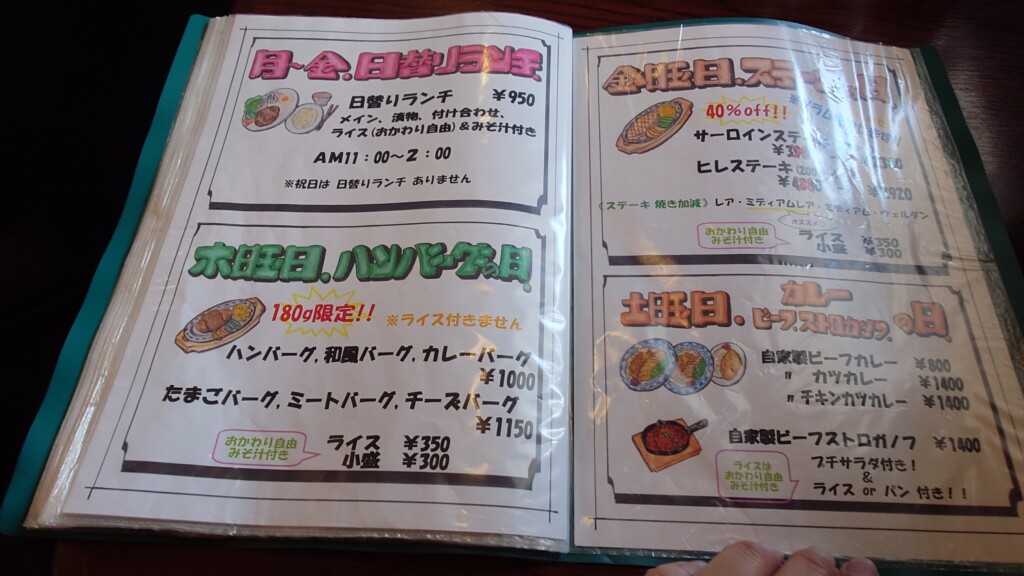 月～金.日替りランチ
日替りランチ ￥950
メイン、漬物、付け合わせ、
ライス(おかわり自由)&みそ汁付き
AM11：00～2：00
※祝日は 日替りランチ ありません
木曜日.ハンバーグの日
180g限定!!
※ライス付きません
ハンバーグ,和風バーグ,カレーバーグ
￥1000
たまごバーグ,ミートバーグ,チーズバーグ
￥1150
おかわり自由
みそ汁付き
ライス ￥350
小盛 ￥300
金曜日.ステーキ
40%off!!
サーロインステーキ
ヒレステーキ
《ステーキ 焼き加減》 レア・ミディアムレア・ミディアム・ウェルダン
おかわり自由
みそ汁付き
ライス ￥350
小盛 ￥300
土曜日.カレー
ビーフストロガノフの日
自家製ビーフカレー ￥800
〃 カツカレー ￥1400
〃 チキンカツカレー ￥1400
自家製ビーフストロガノフ ￥1400
プチサラダ付き!
&
ライス or パン 付き!!
ライスは
おかわり自由
みそ汁付き